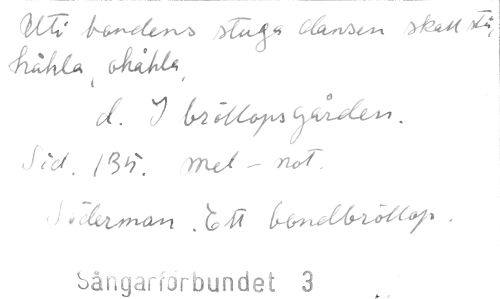 Uti bondens stuga dansen skall stå,
håhla, ohåhla,
d. I bröllopsgården.
Sid. 135. mel - not.
Söderman. Ett bondbröllop.
Sångarförbundet 3